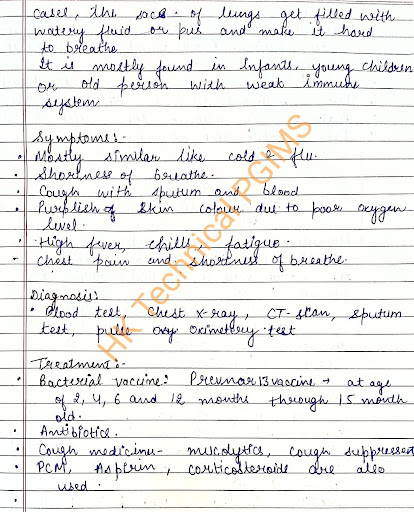 cases, the socs of lungs get filled with
watery fluid or pus and make it hard
to breathe
It is mostly found in Infants, young children
or old person with weak immune
system
Symptoms:-
• Mostly similar like cold & flu.
• Shortness of breathe.
• Cough with sputum and blood
• Purplish of skin colour due to poor oxygen
level.
• High fever, chills, fatigue.
- Chest pain and shortness of breathe.
Diagnosis:
• Blood test, chest x-ray, CT-scan, sputum
test, pulse oxy oximetory test
Treatment:-
• Bacterial vaccine: Prevnar 13 vaccine → at age
of 2, 4, 6 and 12 months through 15 month
old.
• Antibiotics.
• Cough medicine- mucolytics, cough suppressed
• PCM, Aspirin, corticosteroids are also
used.
HK Technical PGIMS